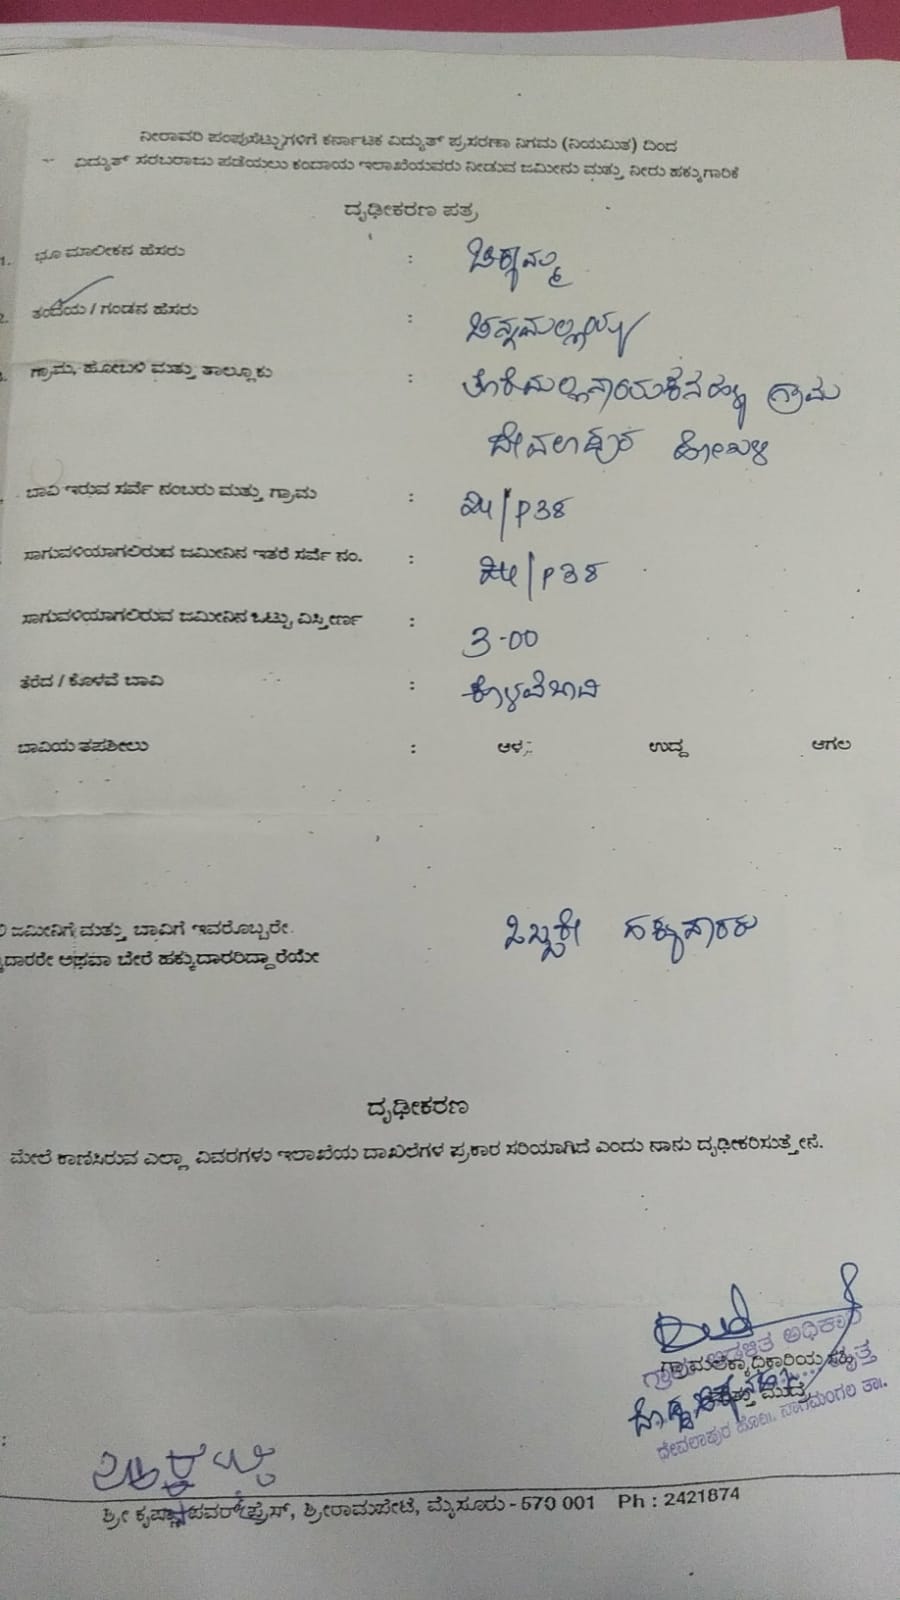 ನೀರಾವರಿ ಪಂಪುಸೆಟ್ಟುಗಳಿಗೆ ಕರ್ನಾಟಕ ವಿದ್ಯುತ್ ಪ್ರಸರಣಾ ನಿಗಮ (ನಿಯಮಿತ) ದಿಂದ
ವಿದ್ಯುತ್ ಸರಬರಾಜು ಪಡೆಯಲು ಕಂದಾಯ ಇಲಾಖೆಯವರು ನೀಡುವ ಜಮೀನು ಮತ್ತು ನೀರು ಹಕ್ಕುಗಾರಿಕೆ
ದೃಢೀಕರಣ ಪತ್ರ
1. ಭೂ ಮಾಲೀಕನ ಹೆಸರು :
2. ತಂದೆಯ / ಗಂಡನ ಹೆಸರು : ಚನ್ನಮಲ್ಲಯ್ಯ
ಗ್ರಾಮ, ಹೋಬಳಿ ಮತ್ತು ತಾಲ್ಲೂಕು : ಗ್ರಾಮ
ದೇವಲಾಪುರ ಹೋಬಳಿ
ಬಾವಿ ಇರುವ ಸರ್ವೆ ನಂಬರು ಮತ್ತು ಗ್ರಾಮ : ೫೪/P38
ಸಾಗುವಳಿಯಾಗಲಿರುವ ಜಮೀನಿನ ಇತರೆ ಸರ್ವೆ ನಂ. : /P38
ಸಾಗುವಳಿಯಾಗಲಿರುವ ಜಮೀನಿನ ಒಟ್ಟು ವಿಸ್ತೀರ್ಣ : 3-00
ತೆರೆದ / ಕೊಳವೆ ಬಾವಿ : ಕೊಳವೆಬಾವಿ
ಬಾವಿಯ ತಪಶೀಲು : ಆಳ ಉದ್ದ ಆಗಲ
ಜಮೀನಿಗೆ ಮತ್ತು ಬಾವಿಗೆ ಇವರೊಬ್ಬರೇ ಒಬ್ಬರೇ ಹಕ್ಕುದಾರರು
ದಾರರೇ ಅಥವಾ ಬೇರೆ ಹಕ್ಕುದಾರರಿದ್ದಾರೆಯೇ
ದೃಢೀಕರಣ
ಮೇಲೆ ಕಾಣಿಸಿರುವ ಎಲ್ಲಾ ವಿವರಗಳು ಇಲಾಖೆಯ ದಾಖಲೆಗಳ ಪ್ರಕಾರ ಸರಿಯಾಗಿದೆ ಎಂದು ನಾನು ದೃಢೀಕರಿಸುತ್ತೇನೆ.
ಗ್ರಾಮ ಆಡಳಿತ ಅಧಿಕಾರಿ
ಗ್ರಾಮಲೆಕ್ಕಾಧಿಕಾರಿಯ ಸಹಿ
ಮತ್ತು ಮುದ್ರೆ ವೃತ್ತ
ದೇವಲಾಪುರ ಹೋ||, ನಾಗಮಂಗಲ ತಾ.
ಶ್ರೀ ಕೃಷ್ಣ ಪವರ್ ಪ್ರೆಸ್, ಶ್ರೀರಾಮಪೇಟೆ, ಮೈಸೂರು - 570 001 Ph : 2421874